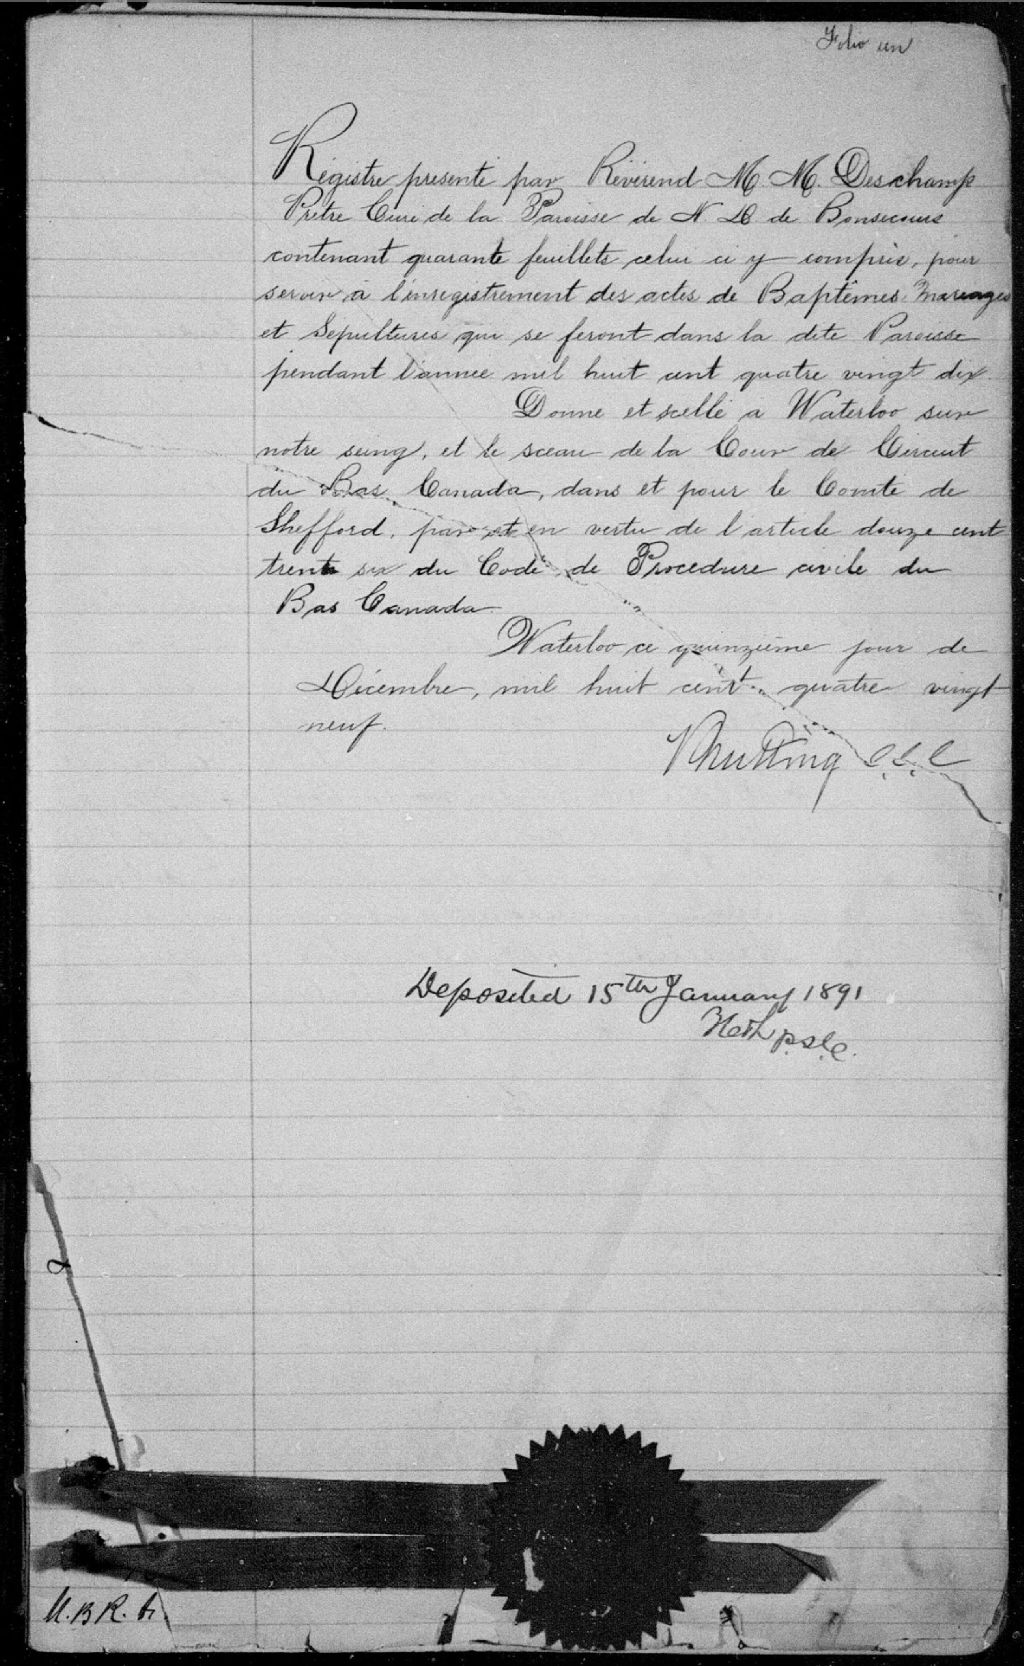 Folio un
Régistre presenté par Révérend M. M. Deschamp
Prêtre Curé de la Paroisse de N D de Bonsecours
contenant quarante feuillets celui ci y compris, pour
servir à l'enregistrement des actes de Baptêmes Mariages
et Sepultures qui se feront dans la dite Paroisse
pendant l'annee mil huit cent quatre vingt dix.
Donne et scellé a Waterloo sur
notre seing, et le sceau de la Cour de Circuit
du Bas Canada, dans et pour le Comté de
Shefford, par et en vertu de l'article douze cent
trente six du Code de Procedure civile du
Bas Canada
Waterloo ce quinzième jour de
Décembre, mil huit cent quatre vingt
neuf.
C.C.C
Deposited 15th January 1891
p.s.c.